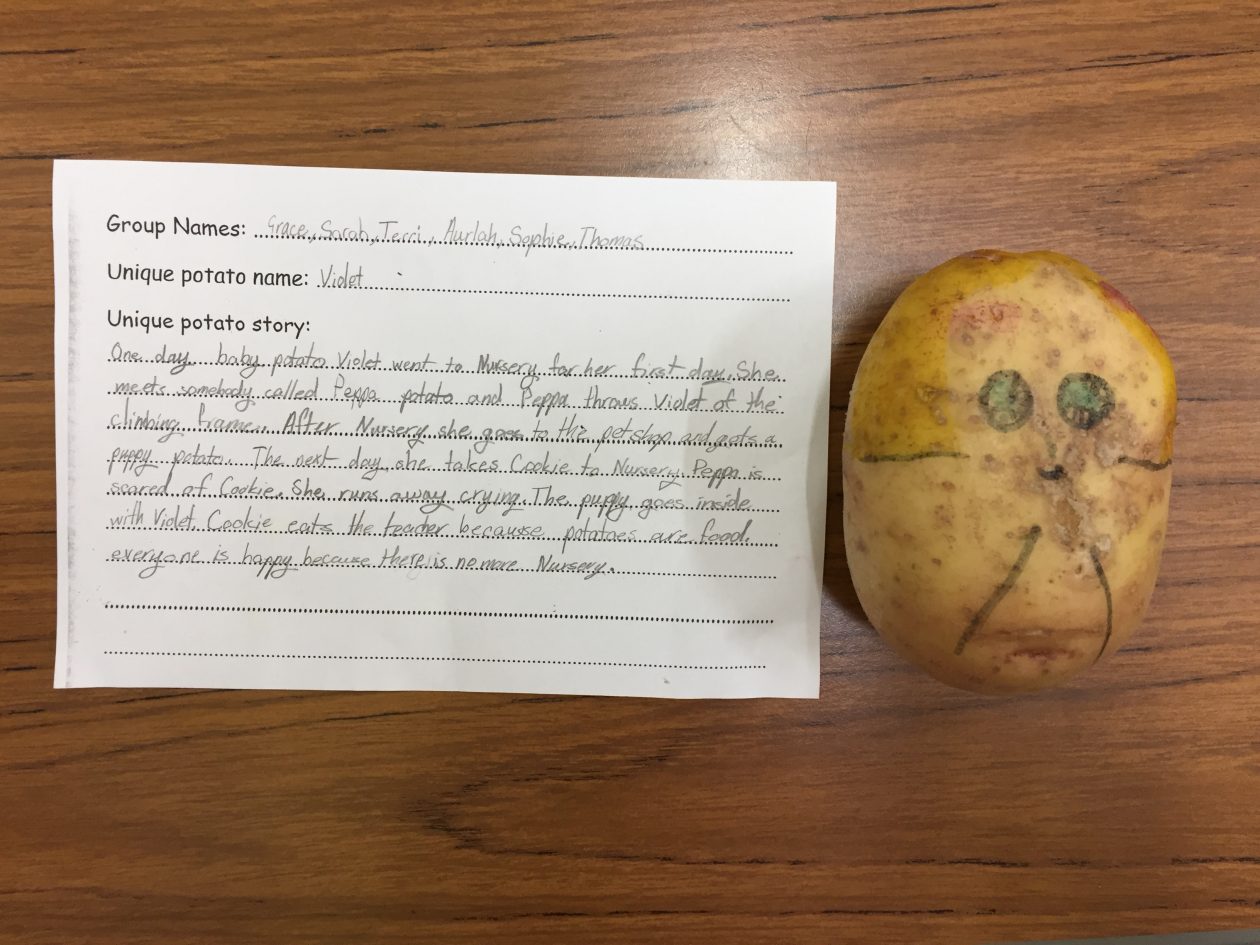 Group Names: Grace, Sarah, Terri, Aurlah, Sophie, Thomas
Unique potato name: Violet
Unique potato story:
One day baby potato Violet went to Nursery for her first day. She
meets somebody called Peppa potato and Peppa throws Violet of the
climbing frame. After Nursery she goes to the petshop and gets a
puppy potato. The next day she takes Cookie to Nursery. Peppa is
scared of Cookie. She runs away crying. The puppy goes inside
with Violet. Cookie eats the teacher because potatoes are food.
everyone is happy because there is no more Nursery.